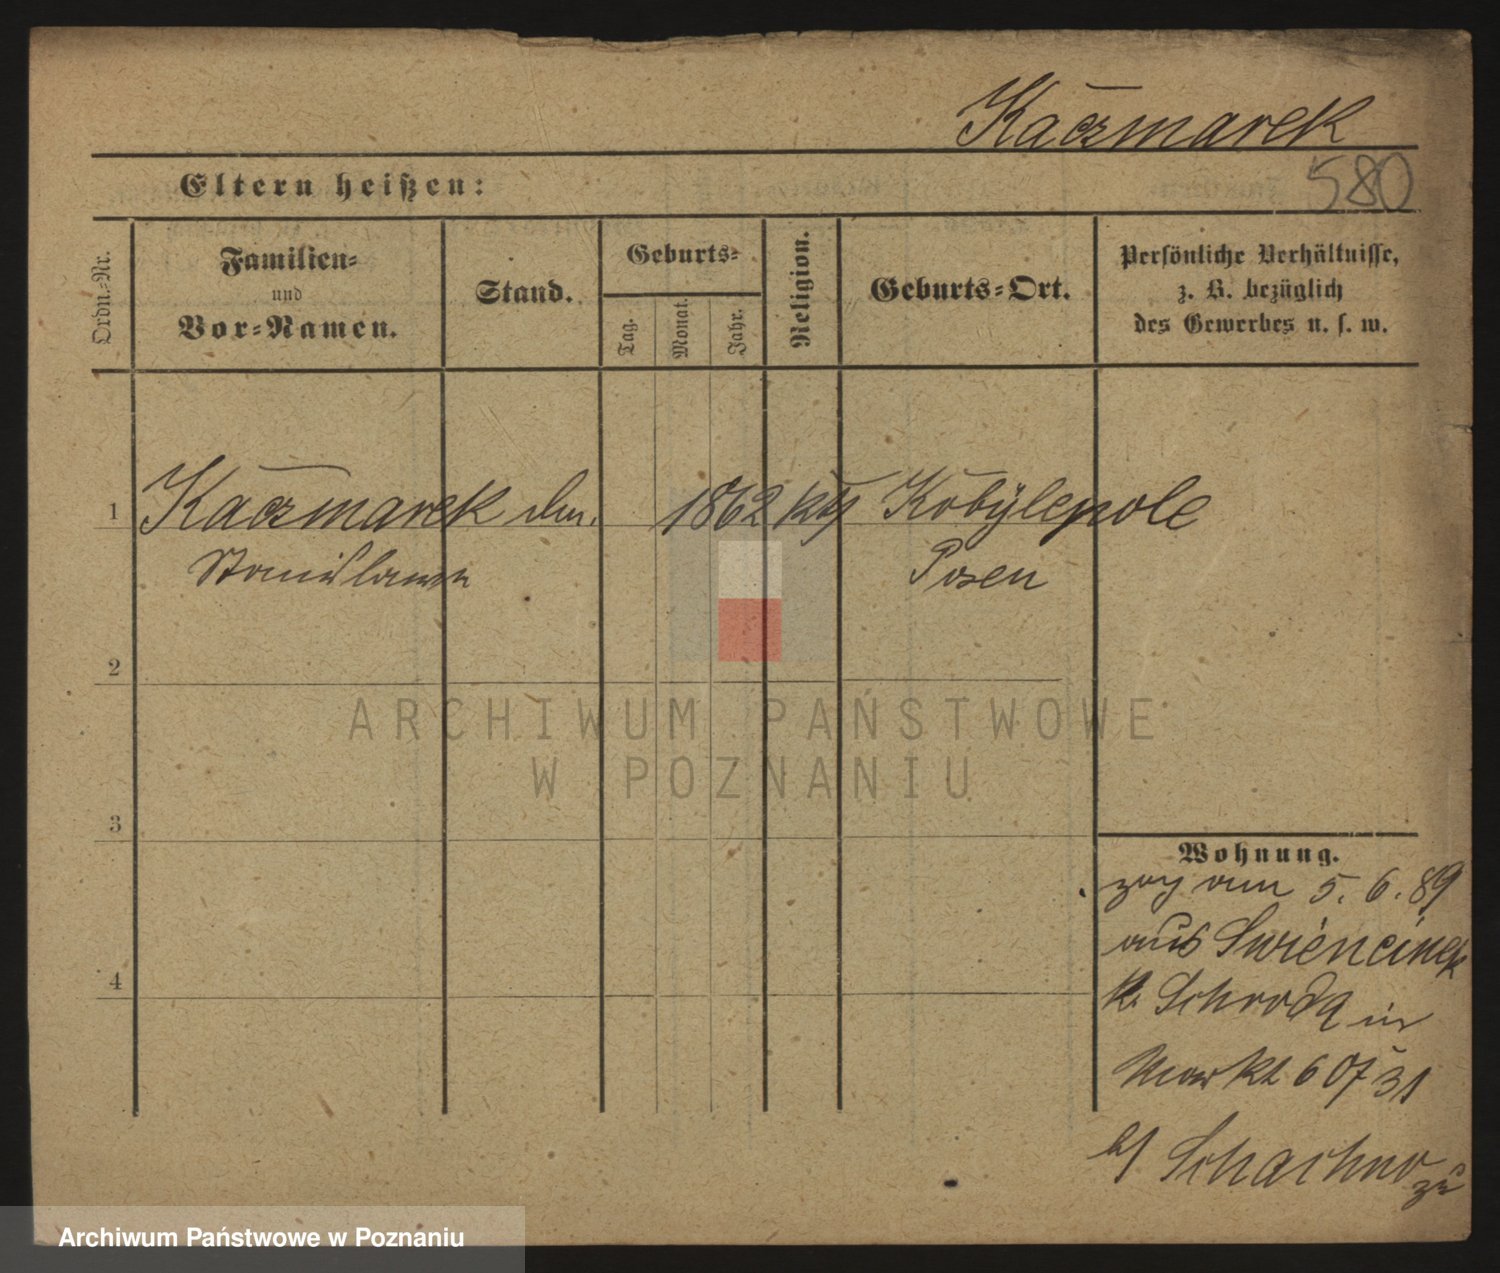 Kaczmarek
580
Eltern heißen:
Ordn.-Nr.
Familien-
und
Vor-Namen.
Stand.
Geburts-
Tag.
Monat.
Jahr.
Religion.
Geburts-Ort.
Persönliche Verhältnisse,
z. B. bezüglich
des Gewerbes u. s. w.
1 Kaczmarek 1862 kth Kobylepole
Stanislawa Posen
2
ARCHIWUM PAŃSTWOWE
W POZNANIU
3
Wohnung.
zog am 5.6.89
aus Swiencinek
K. Schroda in
Markt 6
4
b/ Schachno zu
Archiwum Państwowe w Poznaniu